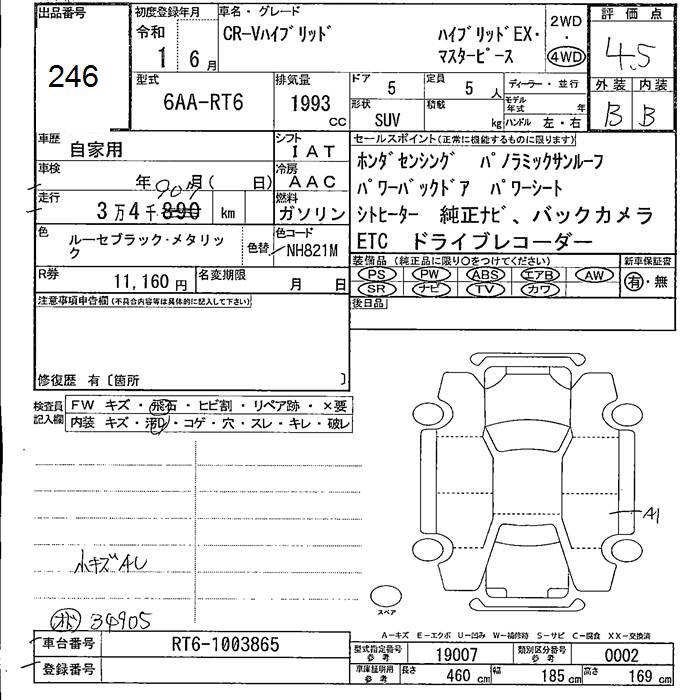 出品番号
246
初度登録年月
令和
1 6月
車名・グレード
CR-Vハイブリッド ハイブリッドEX・
マスターピース
2WD
・
4WD
評価点
4.5
外装 内装
B B
型式
6AA-RT6
排気量
1993 CC
ドア 5
定員 5 人
形状 SUV
積載 kg
ディーラー・並行
モデル年式 年
ハンドル 左・右
車歴
自家用
シフト
IAT
車検
年 月( 日)
冷房
AAC
走行
3万4千890 km
907
燃料
ガソリン
色
ルーセブラック・メタリッ
ク
色替
色コード
NH821M
R券
11,160円
名変期限
月 日
セールスポイント(正常に機能するものに限ります)
ホンダセンシング パノラミックサンルーフ
パワーバックドア パワーシート
シトヒーター 純正ナビ、バックカメラ
ETC ドライブレコーダー
装備品(純正品に限り○をつけてください)
PS PW ABS エアB AW
SR ナビ TV カワ
新車保証書
有・無
後日品
注意事項申告欄(不具合内容等は具体的に記入して下さい)
修復歴 有〔箇所 〕
検査員記入欄
FW キズ・飛石・ヒビ割・リペア跡・×要
内装 キズ・汚レ・コゲ・穴・スレ・キレ・破レ
A1
小キズAU
34905
スペア
A-キズ E-エクボ U-凹み W-補修跡 S-サビ C-腐食 XX-交換済
車台番号 RT6-1003865
登録番号
型式指定番号 参考 19007
類別区分番号 参考 0002
車庫証明用 参考 長さ 460 cm 幅 185 cm 高さ 169 cm